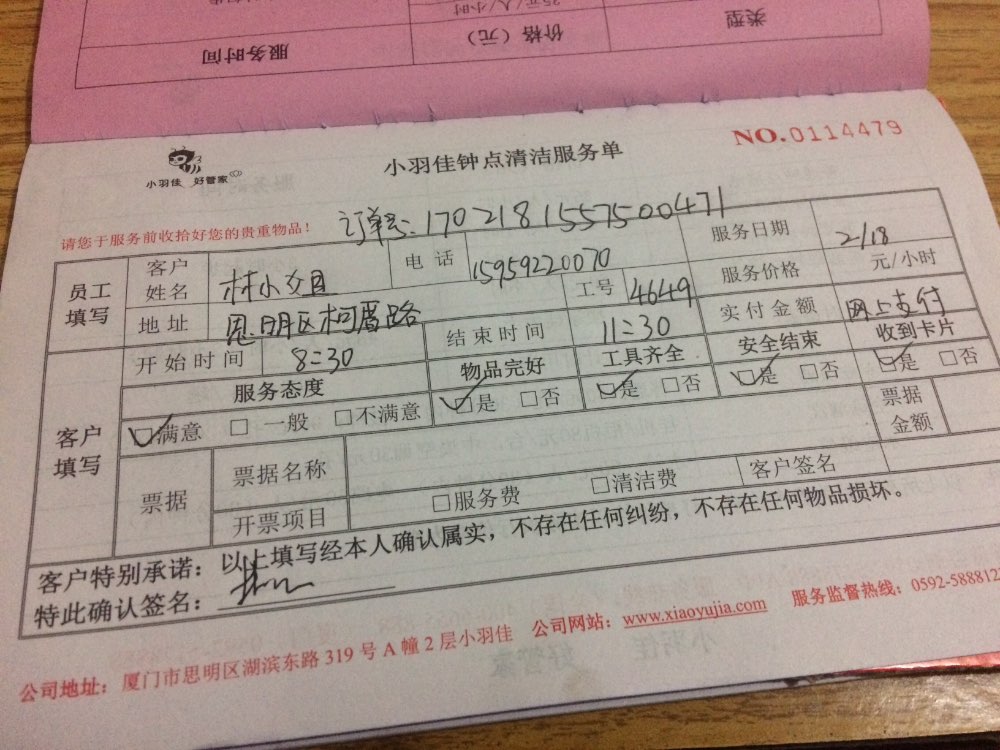 服务时间 价格（元） 类型
35元/人/小时
NO.0114479
小羽佳 好管家
小羽佳钟点清洁服务单
请您于服务前收拾好您的贵重物品！
订单号:170218155757500471
员工填写 客户姓名 林小姐 电话 15959220070 服务日期 2/18
地址 思明区柯厝路 工号 4649 服务价格 元/小时
开始时间 8:30 结束时间 11:30 实付金额 网上支付
客户填写 服务态度 物品完好 工具齐全 安全结束 收到卡片
☑满意 □一般 □不满意 ☑是 □否 ☑是 □否 ☑是 □否 ☑是 □否
票据 票据名称 票据金额
开票项目 □服务费 □清洁费 客户签名
客户特别承诺：以上填写经本人确认属实，不存在任何纠纷，不存在任何物品损坏。
特此确认签名：
公司地址：厦门市思明区湖滨东路319号A幢2层小羽佳 公司网站：www.xiaoyujia.com 服务监督热线：0592-588812